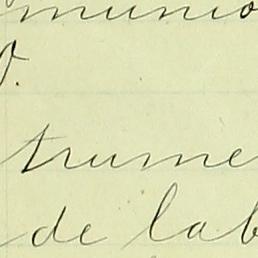 munio
trume
de lab